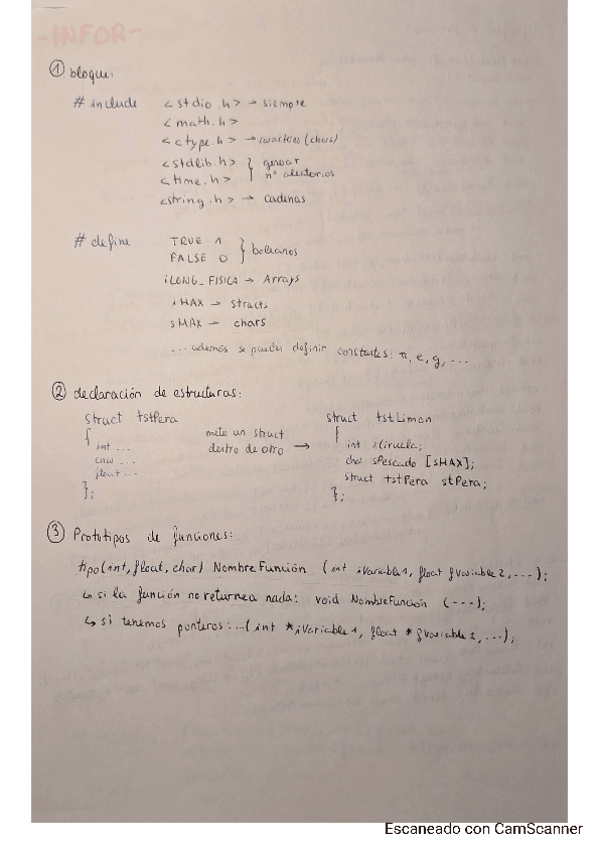 -INFOR-
① bloque:
# include <stdio.h> → siempre
<math.h>
<ctype.h> → carácteres (chars)
<stdlib.h> } generar
<time.h> nº aleatorios
<string.h> → cadenas
# define TRUE 1 } boleanos
FALSE 0
iLONG_FISICA → Arrays
iMAX → structs
sMAX → chars
... además se pueden definir constantes: π, e, g, ...
② declaración de estructuras:
struct tstPera
{
int ...
char ...
float ...
};
mete un struct
dentro de otro →
struct tstLimon
{
int iCiruela;
char sPescado [sMAX];
struct tstPera stPera;
};
③ Prototipos de funciones:
tipo(int, float, char) NombreFunción (int iVariable1, float fVariable2, ...);
↳ si la función no returnea nada: void NombreFunción (---);
↳ si tenemos punteros: ...(int *iVariable1, float *fVariable2, ...);
Escaneado con CamScanner